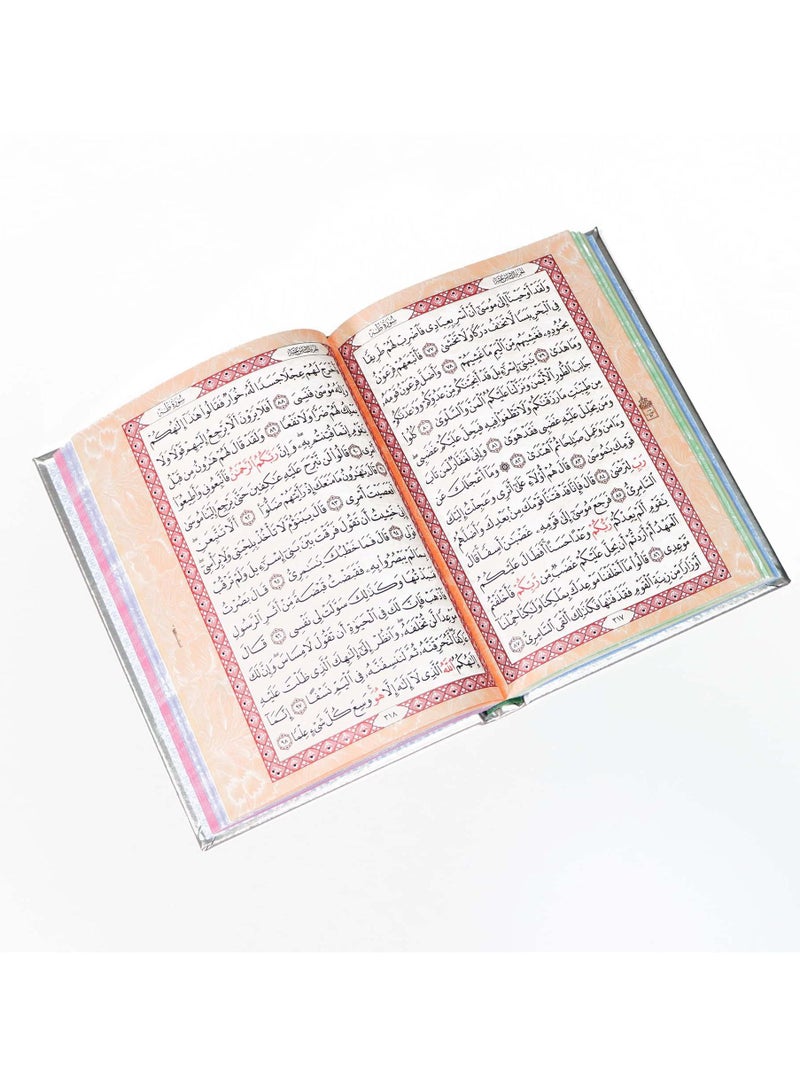 الجزء السادس عشر
سورة طه
وَلَقَدْ أَوْحَيْنَآ إِلَىٰ مُوسَىٰٓ أَنْ أَسْرِ بِعِبَادِى فَٱضْرِبْ لَهُمْ طَرِيقًا
فِى ٱلْبَحْرِ يَبَسًا لَّا تَخَٰفُ دَرَكًا وَلَا تَخْشَىٰ ٧٧ فَأَتْبَعَهُمْ فِرْعَوْنُ
بِجُنُودِهِۦ فَغَشِيَهُم مِّنَ ٱلْيَمِّ مَا غَشِيَهُمْ ٧٨ وَأَضَلَّ فِرْعَوْنُ قَوْمَهُۥ
وَمَا هَدَىٰ ٧٩ يَٰبَنِىٓ إِسْرَٰٓءِيلَ قَدْ أَنجَيْنَٰكُم مِّنْ عَدُوِّكُمْ وَوَٰعَدْنَٰكُمْ
جَانِبَ ٱلطُّورِ ٱلْأَيْمَنَ وَنَزَّلْنَا عَلَيْكُمُ ٱلْمَنَّ وَٱلسَّلْوَىٰ ٨٠ كُلُوا۟
مِن طَيِّبَٰتِ مَا رَزَقْنَٰكُمْ وَلَا تَطْغَوْا۟ فِيهِ فَيَحِلَّ عَلَيْكُمْ غَضَبِى
وَمَن يَحْلِلْ عَلَيْهِ غَضَبِى فَقَدْ هَوَىٰ ٨١ وَإِنِّى لَغَفَّارٌ لِّمَن تَابَ
وَءَامَنَ وَعَمِلَ صَٰلِحًا ثُمَّ ٱهْتَدَىٰ ٨٢ وَمَآ أَعْجَلَكَ عَن
قَوْمِكَ يَٰمُوسَىٰ ٨٣ قَالَ هُمْ أُو۟لَآءِ عَلَىٰٓ أَثَرِى وَعَجِلْتُ إِلَيْكَ
رَبِّ لِتَرْضَىٰ ٨٤ قَالَ فَإِنَّا قَدْ فَتَنَّا قَوْمَكَ مِنۢ بَعْدِكَ وَأَضَلَّهُمُ
ٱلسَّامِرِىُّ ٨٥ فَرَجَعَ مُوسَىٰٓ إِلَىٰ قَوْمِهِۦ غَضْبَٰنَ أَسِفًا قَالَ
يَٰقَوْمِ أَلَمْ يَعِدْكُمْ رَبُّكُمْ وَعْدًا حَسَنًا أَفَطَالَ عَلَيْكُمُ
ٱلْعَهْدُ أَمْ أَرَدتُّمْ أَن يَحِلَّ عَلَيْكُمْ غَضَبٌ مِّن رَّبِّكُمْ فَأَخْلَفْتُم
مَّوْعِدِى ٨٦ قَالُوا۟ مَآ أَخْلَفْنَا مَوْعِدَكَ بِمَلْكِنَا وَلَٰكِنَّا حُمِّلْنَآ
أَوْزَارًا مِّن زِينَةِ ٱلْقَوْمِ فَقَذَفْنَٰهَا فَكَذَٰلِكَ أَلْقَى ٱلسَّامِرِىُّ ٨٧
٣١٧
الجزء السادس عشر
سورة طه
لَهُمْ عِجْلًا جَسَدًا لَّهُۥ خُوَارٌ فَقَالُوا۟ هَٰذَآ إِلَٰهُكُمْ
وَإِلَٰهُ مُوسَىٰ فَنَسِىَ ٨٨ أَفَلَا يَرَوْنَ أَلَّا يَرْجِعُ إِلَيْهِمْ قَوْلًا وَلَا
يَمْلِكُ لَهُمْ ضَرًّا وَلَا نَفْعًا ٨٩ وَلَقَدْ قَالَ لَهُمْ هَٰرُونُ مِن قَبْلُ
يَٰقَوْمِ إِنَّمَا فُتِنتُم بِهِۦ وَإِنَّ رَبَّكُمُ ٱلرَّحْمَٰنُ فَٱتَّبِعُونِى وَأَطِيعُوٓا۟
أَمْرِى ٩٠ قَالُوا۟ لَن نَّبْرَحَ عَلَيْهِ عَٰكِفِينَ حَتَّىٰ يَرْجِعَ إِلَيْنَا مُوسَىٰ
٩١ قَالَ يَٰهَٰرُونُ مَا مَنَعَكَ إِذْ رَأَيْتَهُمْ ضَلُّوٓا۟ ٩٢ أَلَّا تَتَّبِعَنِ
أَفَعَصَيْتَ أَمْرِى ٩٣ قَالَ يَبْنَؤُمَّ لَا تَأْخُذْ بِلِحْيَتِى وَلَا بِرَأْسِىٓ
إِنِّى خَشِيتُ أَن تَقُولَ فَرَّقْتَ بَيْنَ بَنِىٓ إِسْرَٰٓءِيلَ وَلَمْ تَرْقُبْ
قَوْلِى ٩٤ قَالَ فَمَا خَطْبُكَ يَٰسَٰمِرِىُّ ٩٥ قَالَ بَصُرْتُ
بِمَا لَمْ يَبْصُرُوا۟ بِهِۦ فَقَبَضْتُ قَبْضَةً مِّنْ أَثَرِ ٱلرَّسُولِ
فَنَبَذْتُهَا وَكَذَٰلِكَ سَوَّلَتْ لِى نَفْسِى ٩٦ قَالَ
فَٱذْهَبْ فَإِنَّ لَكَ فِى ٱلْحَيَوٰةِ أَن تَقُولَ لَا مِسَاسَ وَإِنَّ لَكَ
مَوْعِدًا لَّن تُخْلَفَهُۥ وَٱنظُرْ إِلَىٰٓ إِلَٰهِكَ ٱلَّذِى ظَلْتَ عَلَيْهِ
عَاكِفًا لَّنُحَرِّقَنَّهُۥ ثُمَّ لَنَنسِفَنَّهُۥ فِى ٱلْيَمِّ نَسْفًا ٩٧ إِنَّمَآ
إِلَٰهُكُمُ ٱللَّهُ ٱلَّذِى لَآ إِلَٰهَ إِلَّا هُوَ وَسِعَ كُلَّ شَىْءٍ عِلْمًا ٩٨
٣١٨